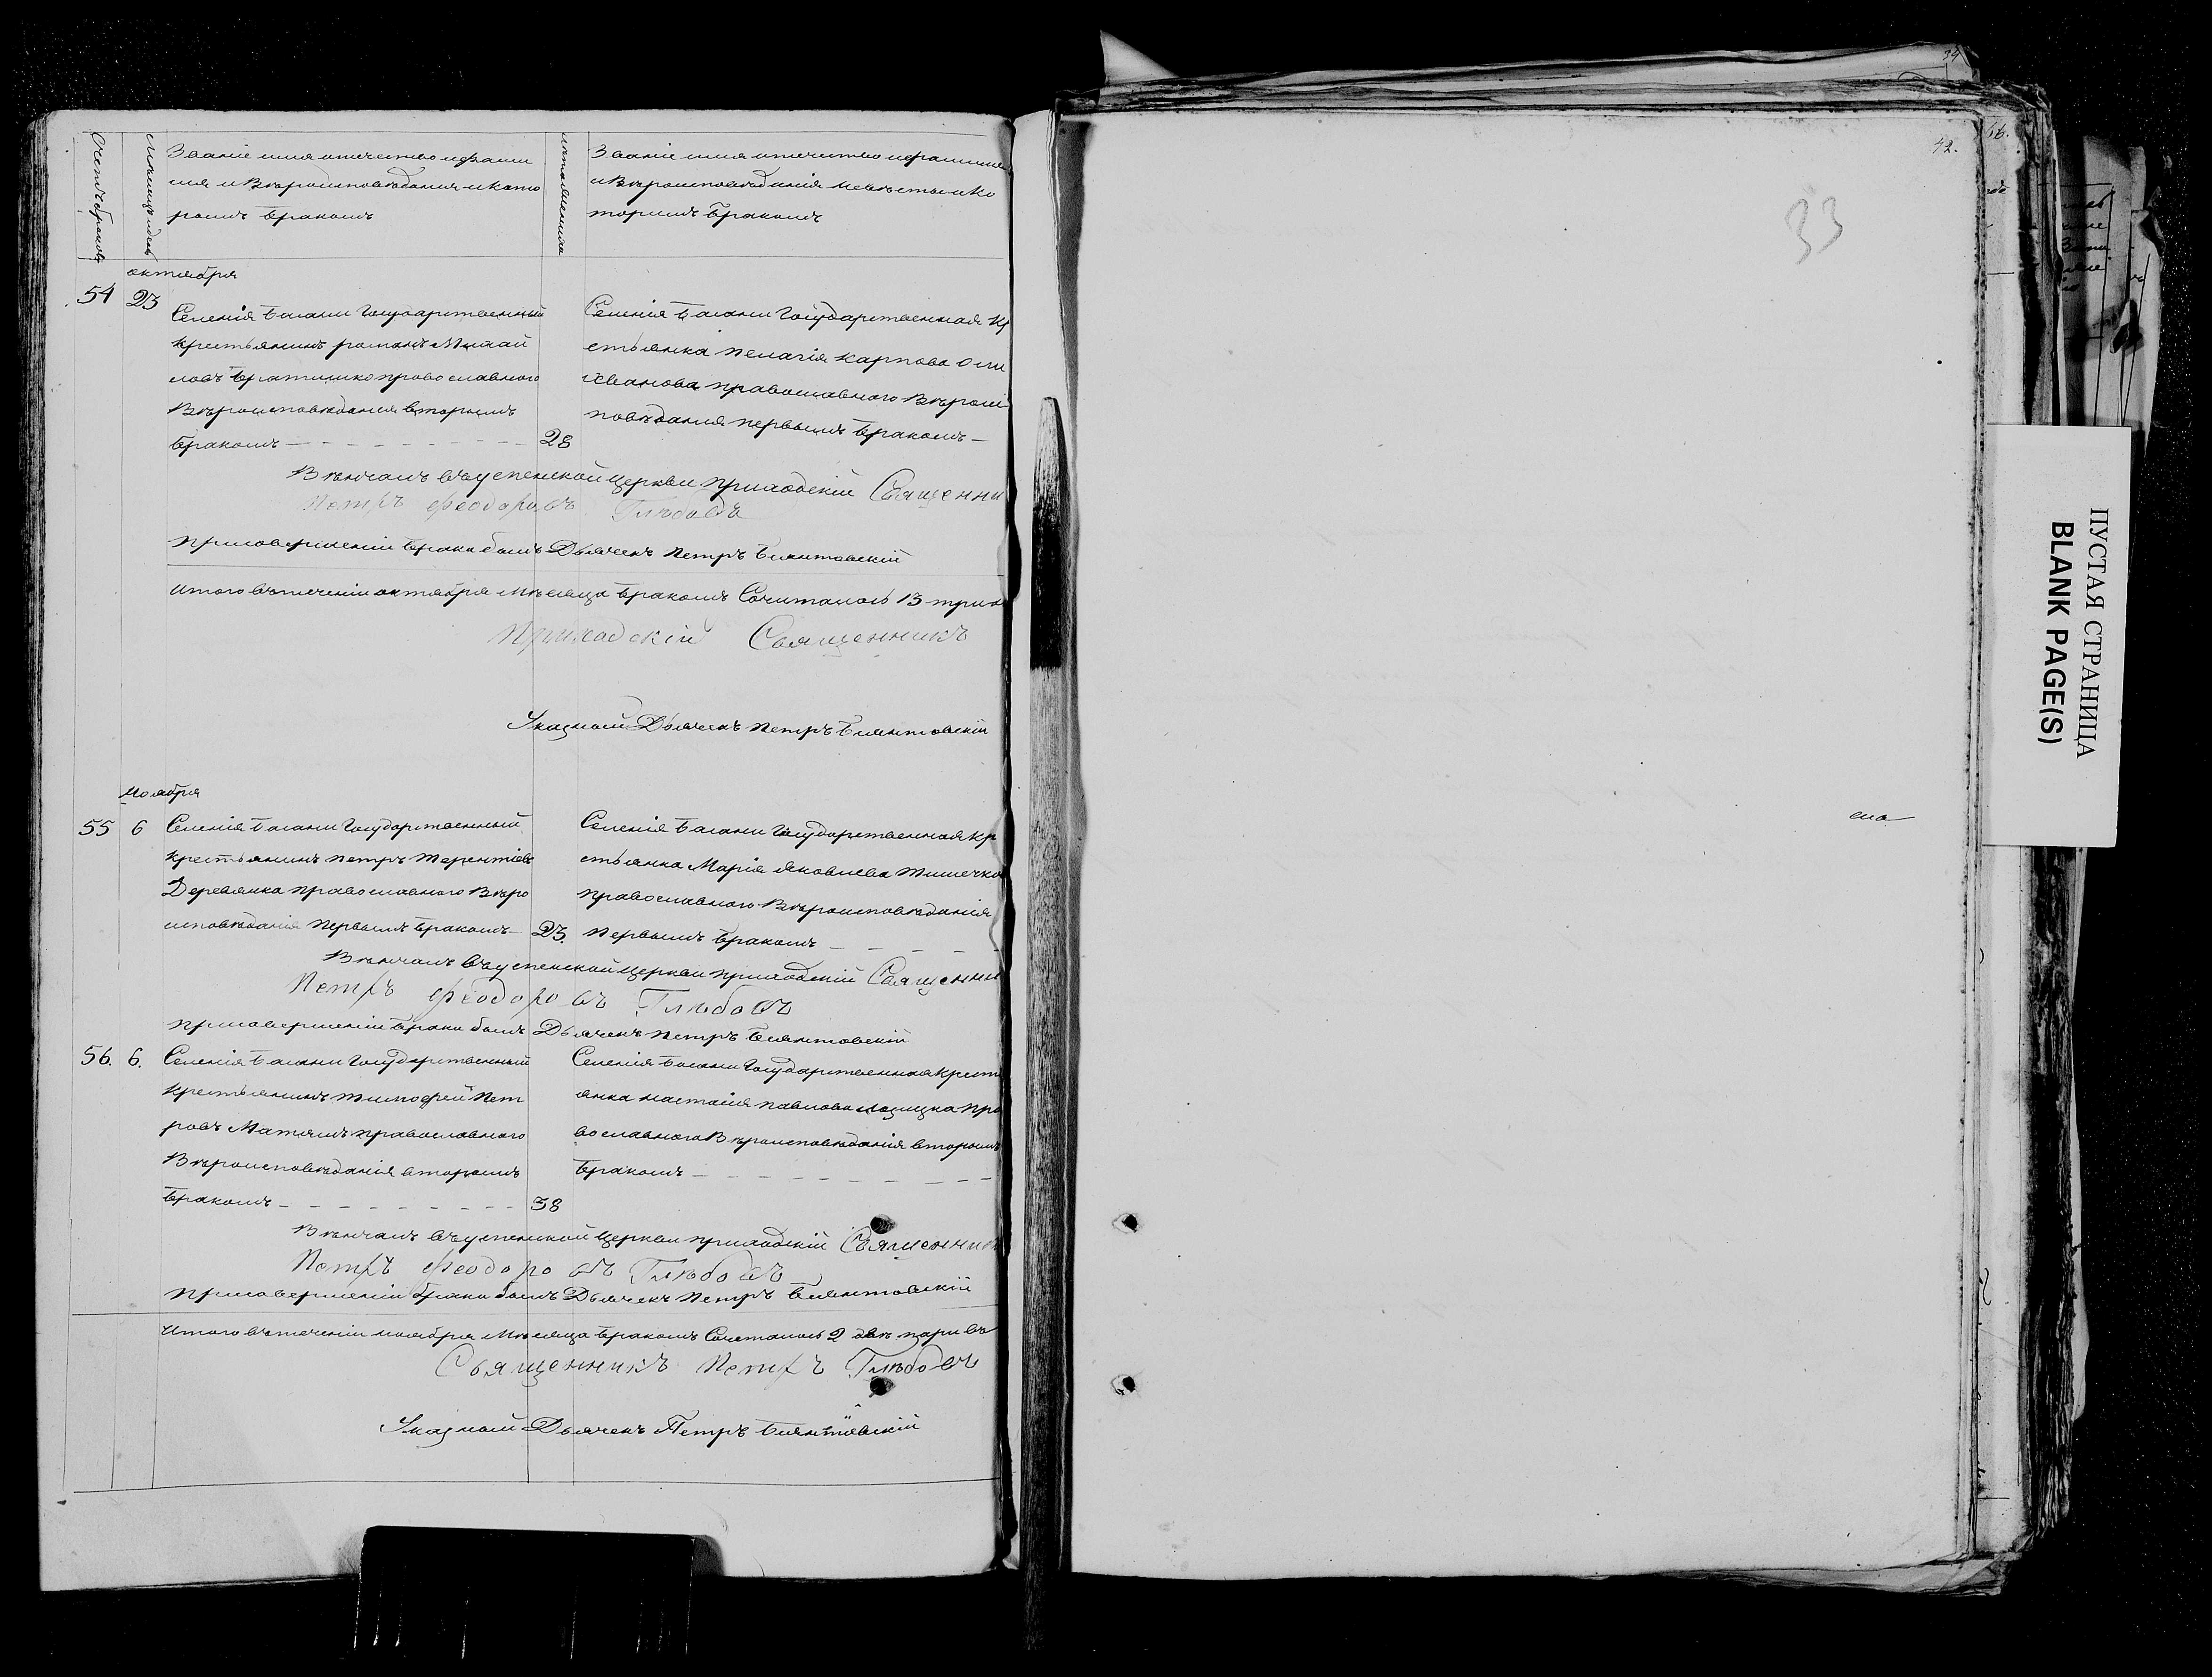 Счетъ браковъ
Месяцъ и день
Званіе имя отчество и фами
лия и Вѣроисповѣдания и кото
рымъ бракомъ
лѣта жениха
Званіе имя отчество и фамилия
и Вѣроисповѣданія невѣсты и Ко
торимъ бракомъ
октября
54 23
Селенія Балани Государственный
крестьянинъ романъ Михай
ловъ православного
Вѣроисповѣдания вторымъ
бракомъ 28
Селенія Балани Государственная кр
естьянка пелагія карпова
православного Вѣроис
повѣдания первымъ бракомъ
Вѣнчалъ въ успенской церкви приходскій Священни
Петръ Феодоровъ Глѣбовъ
При совершеніи брака былъ Дьячекъ Петръ
Итого въ теченіи октября Мѣсяца бракомъ Сочиталось 13
Приходскій Священникъ
Указной Дьячекъ Петръ
Ноября
55 6
Селенія Балани Государственный
крестьянинъ петръ терентіевъ
Деревянка православного Вѣро
исповѣданія первымъ бракомъ 23.
Селенія Балани Государственная кр
естьянка Марія яковлева
православного Вѣроисповѣданія
первымъ бракомъ
Вѣнчалъ въ успенской церкви приходскій Священни
Петръ Феодоровъ Глѣбовъ
При совершеніи брака былъ Дьячекъ Петръ
56. 6.
Селенія Балани Государственный
крестьянинъ тимофей Пет
ровъ православного
Вѣроисповѣданія вторымъ
бракомъ 38
Селенія Балани Государственная крест
янка настасія павлова пра
вославного Вѣроисповѣданія вторымъ
бракомъ
Вѣнчалъ въ успенской церкви приходскій Священник
Петръ Феодоровъ Глѣбовъ
При совершеніи брака былъ Дьячекъ Петръ
Итого въ теченіи ноября Мѣсяца бракомъ Сочеталось 2 двѣ пари
Священникъ Петръ Глѣбовъ
Указной Дьячекъ Петръ
34
42.
33
ПУСТАЯ СТРАНИЦА
BLANK PAGE(S)